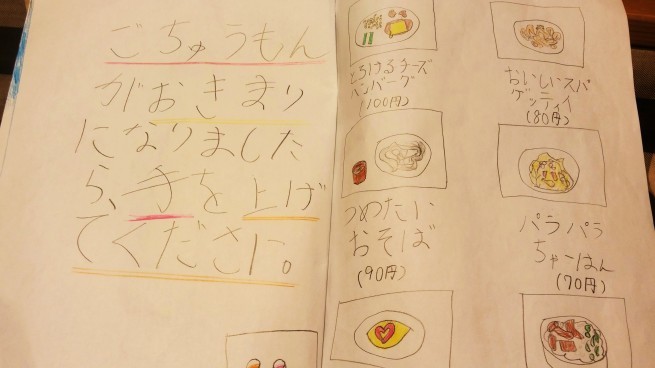 ごちゅうもん
がおきまり
になりました
ら、手を上げ
てください。
とろけるチーズ
ハンバーグ
(100円)
おいしいスパ
ゲッティイ
(80円)
つめたい
おそば
(90円)
パラパラ
ちゃーはん
(70円)